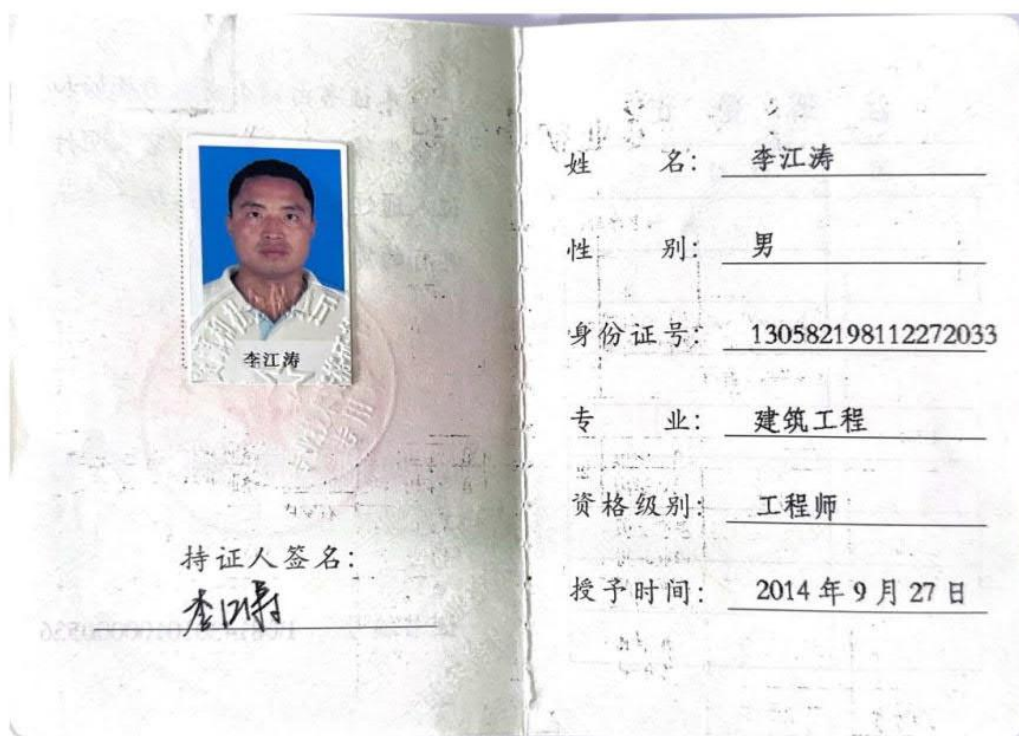 李江涛
持证人签名:
李江涛
姓 名: 李江涛
性 别: 男
身份证号: 130582198112272033
专 业: 建筑工程
资格级别: 工程师
授予时间: 2014年9月27日